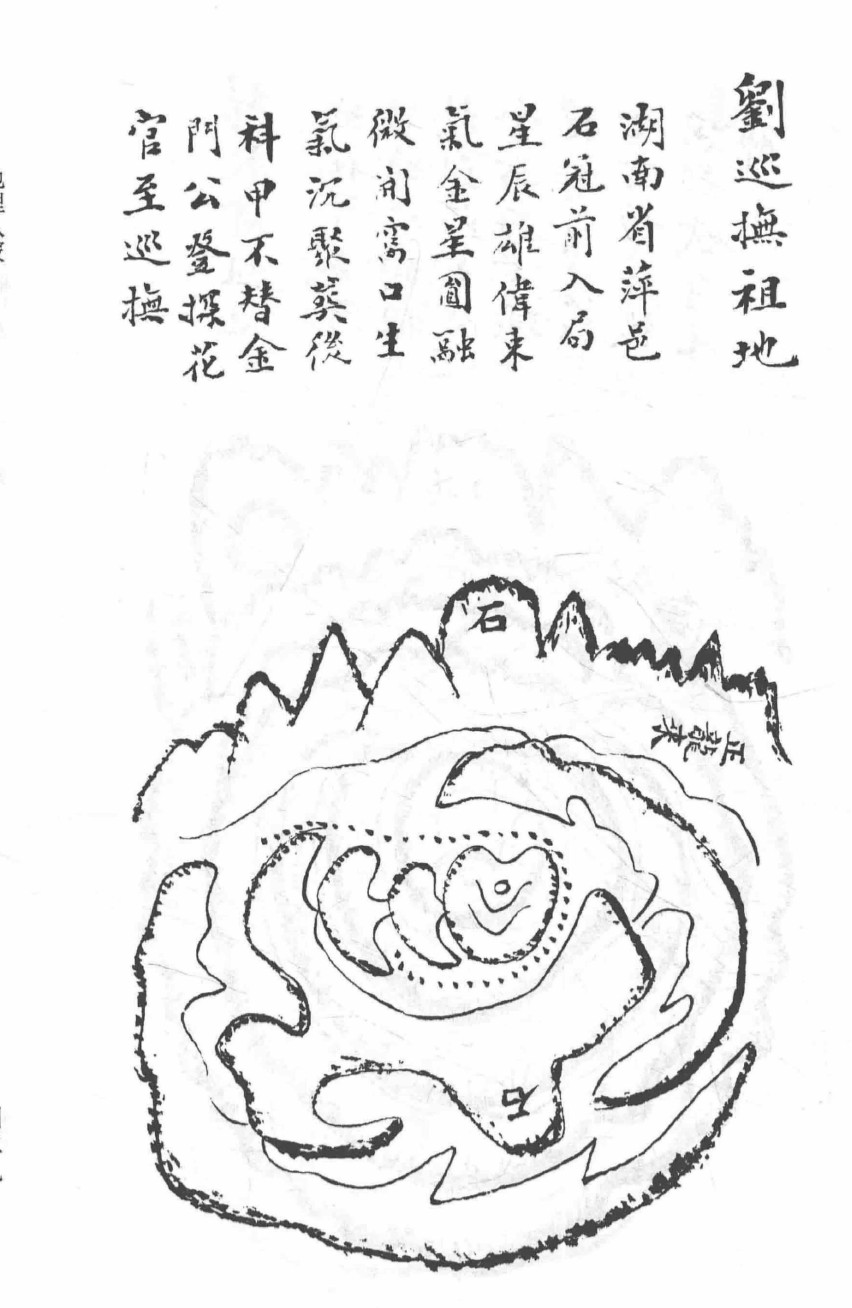 劉巡撫祖地
湖南省萍邑
石冠前入局
星辰雄偉束
氣金星圓融
微開窩口生
氣沉聚葬後
科甲不替金
門公登探花
官至巡撫
石
正龍來
石